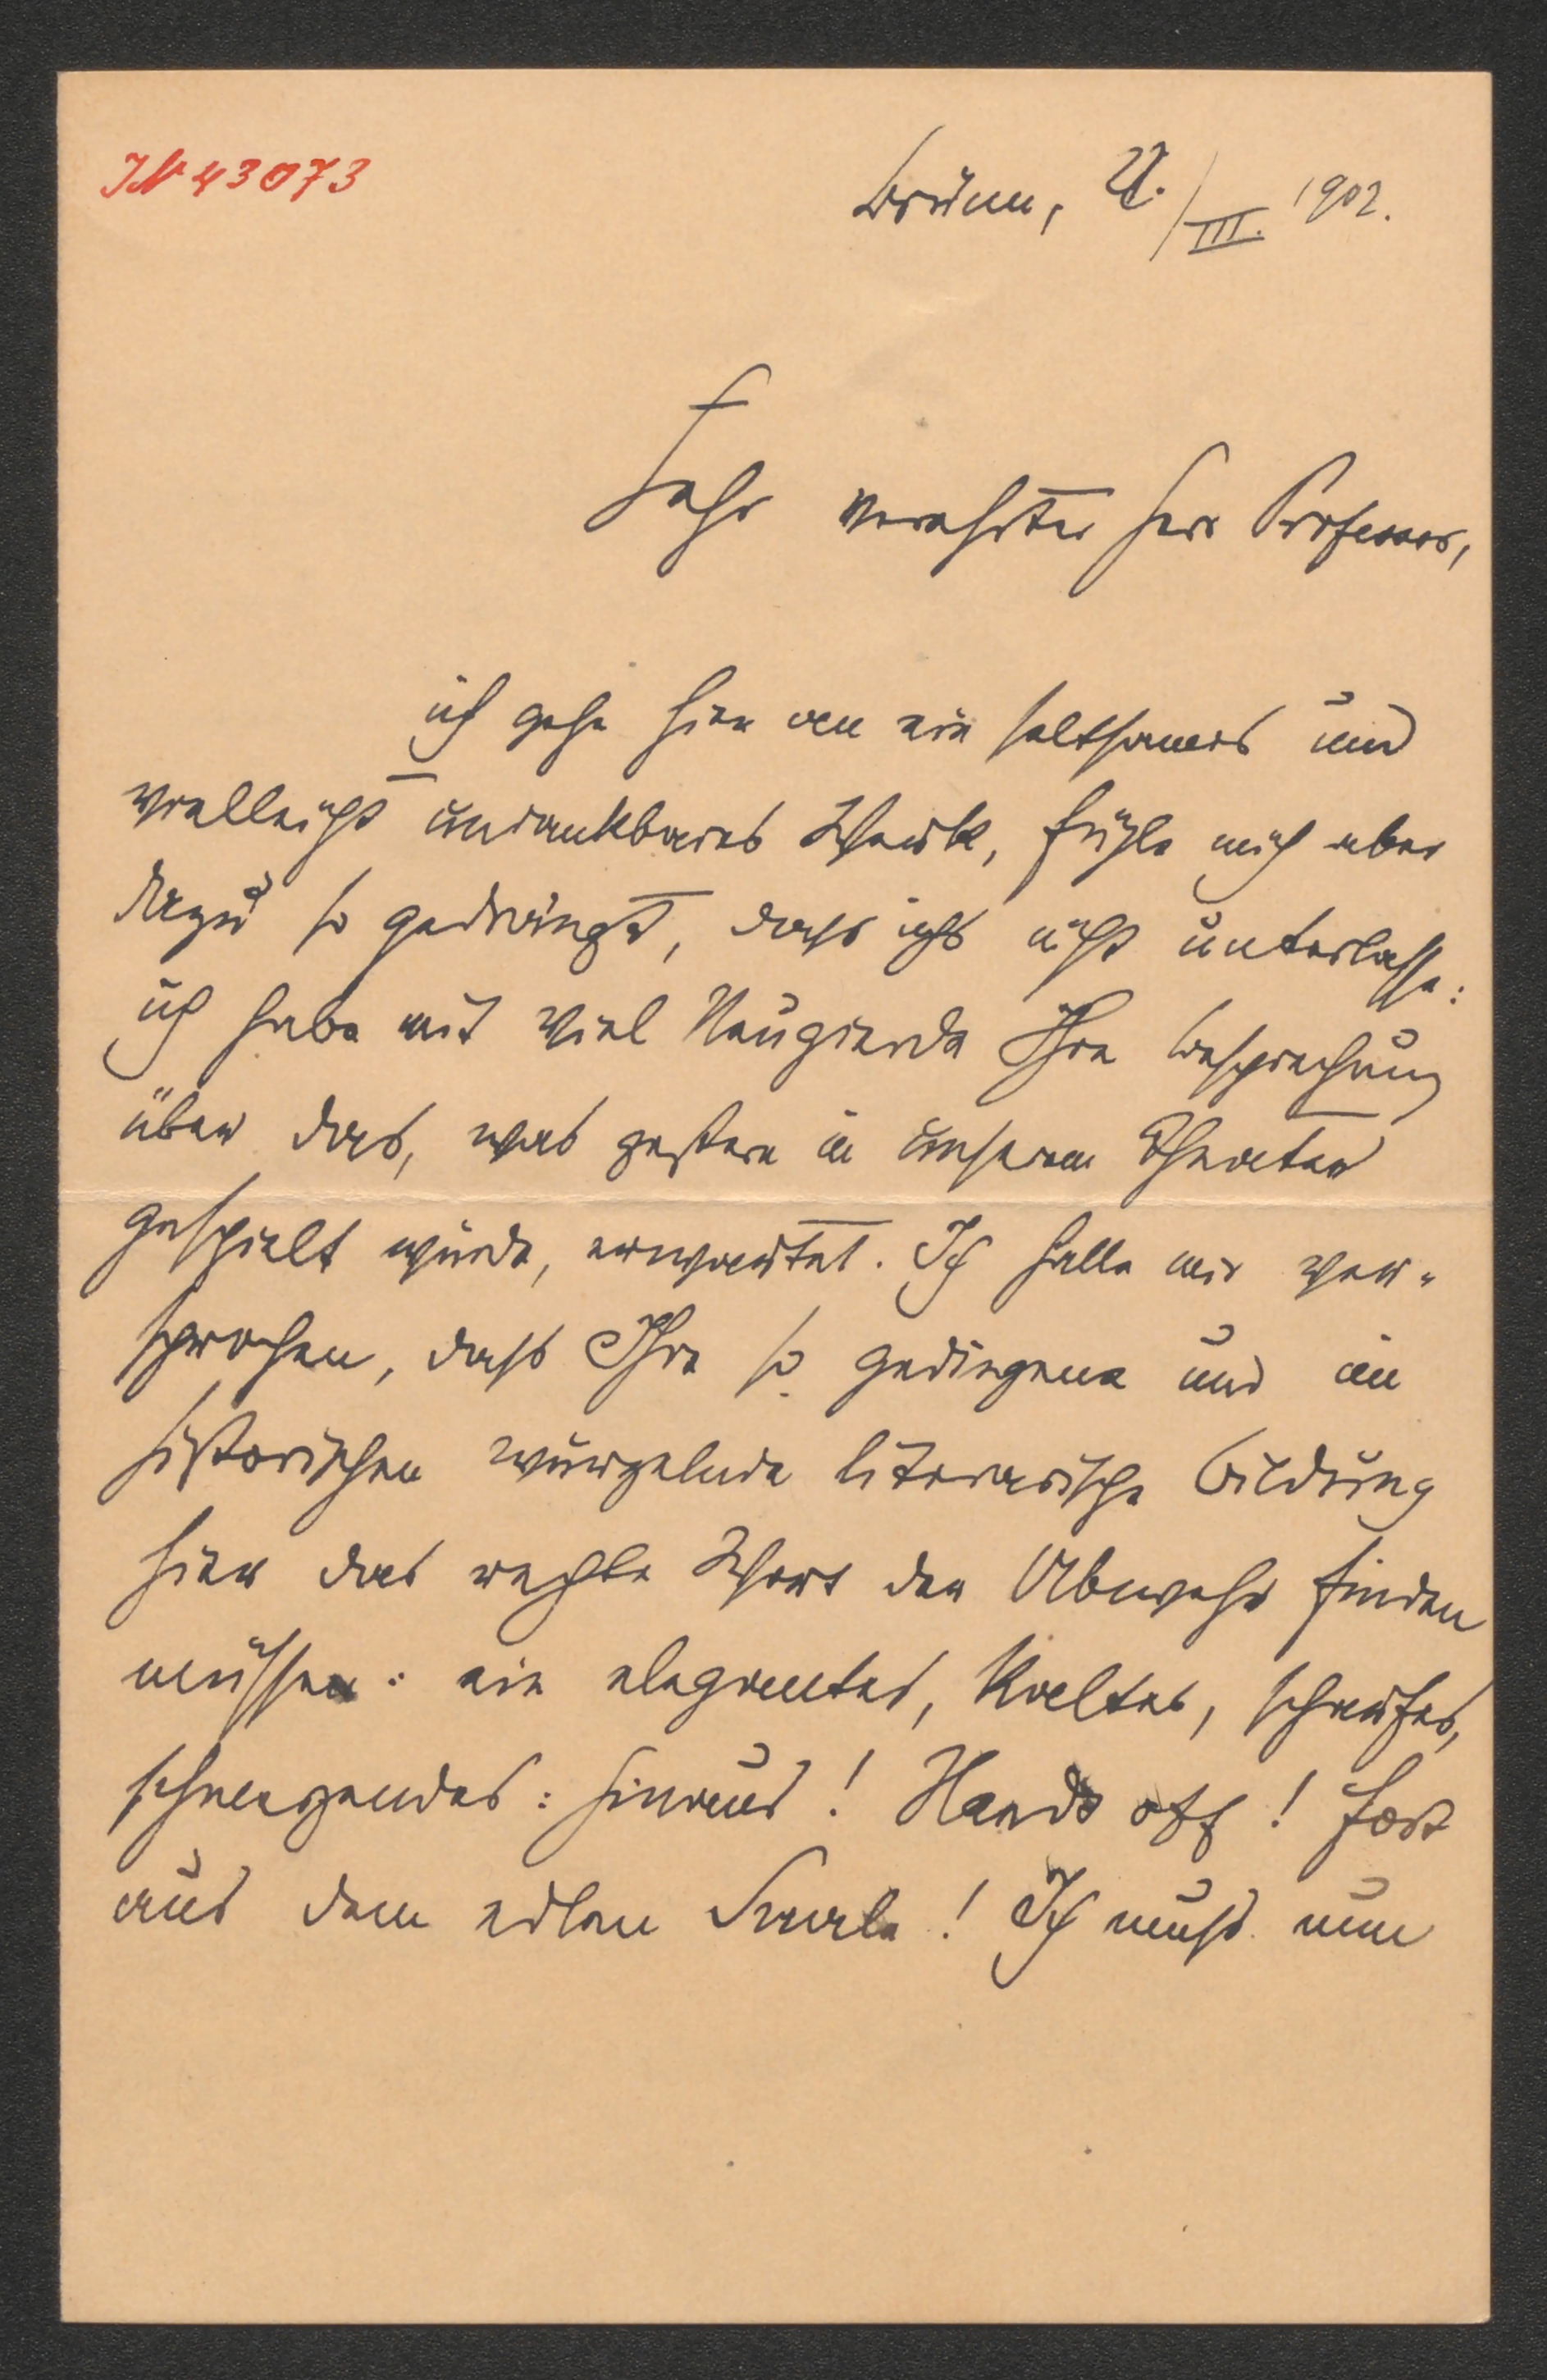 IN 43073
Brünn, 22./III. 1902.
Sehr verehrter Herr Professor,
ich gehe hier an ein seltsames und
vielleicht undankbares Werk, fühle mich aber
dazu so gedrängt, dass ichs nicht unterlasse:
ich habe mit viel Neugierde Ihre Besprechung
über das, was gestern in unserem Theater
gespielt wurde, erwartet. Ich hatte mir ver-
sprochen, dass Ihre so gediegene und im
historischen wurzelnde literarische Bildung
hier das rechte Wort der Abwehr finden
müsse: ein elegantes, kaltes, scharfes,
schmerzendes: hinaus! Hands off! Fort
aus dem edlen Saale! Ich muss nun